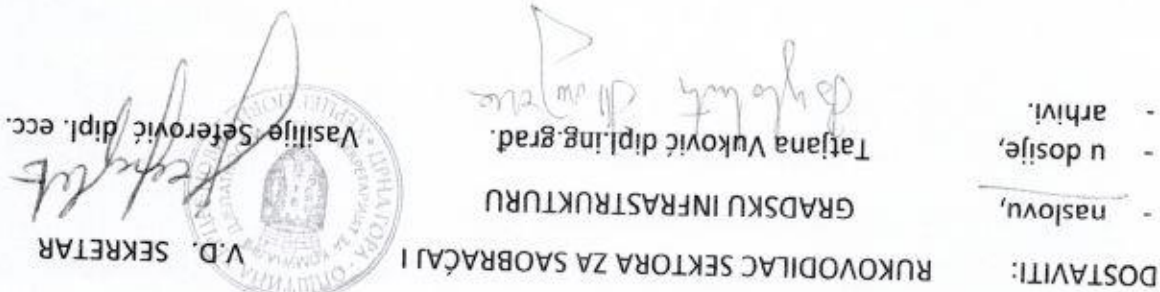 DOSTAVITI:
- naslovu,
- u dosije,
- arhivi.
RUKOVODILAC SEKTORA ZA SAOBRAĆAJ I
GRADSKU INFRASTRUKTURU
Tatjana Vuković dipl.ing.grad.
V.D. SEKRETAR
Vasilije Seferović dipl. ecc.
ЦРНА ГОРА · ОПШТИНА